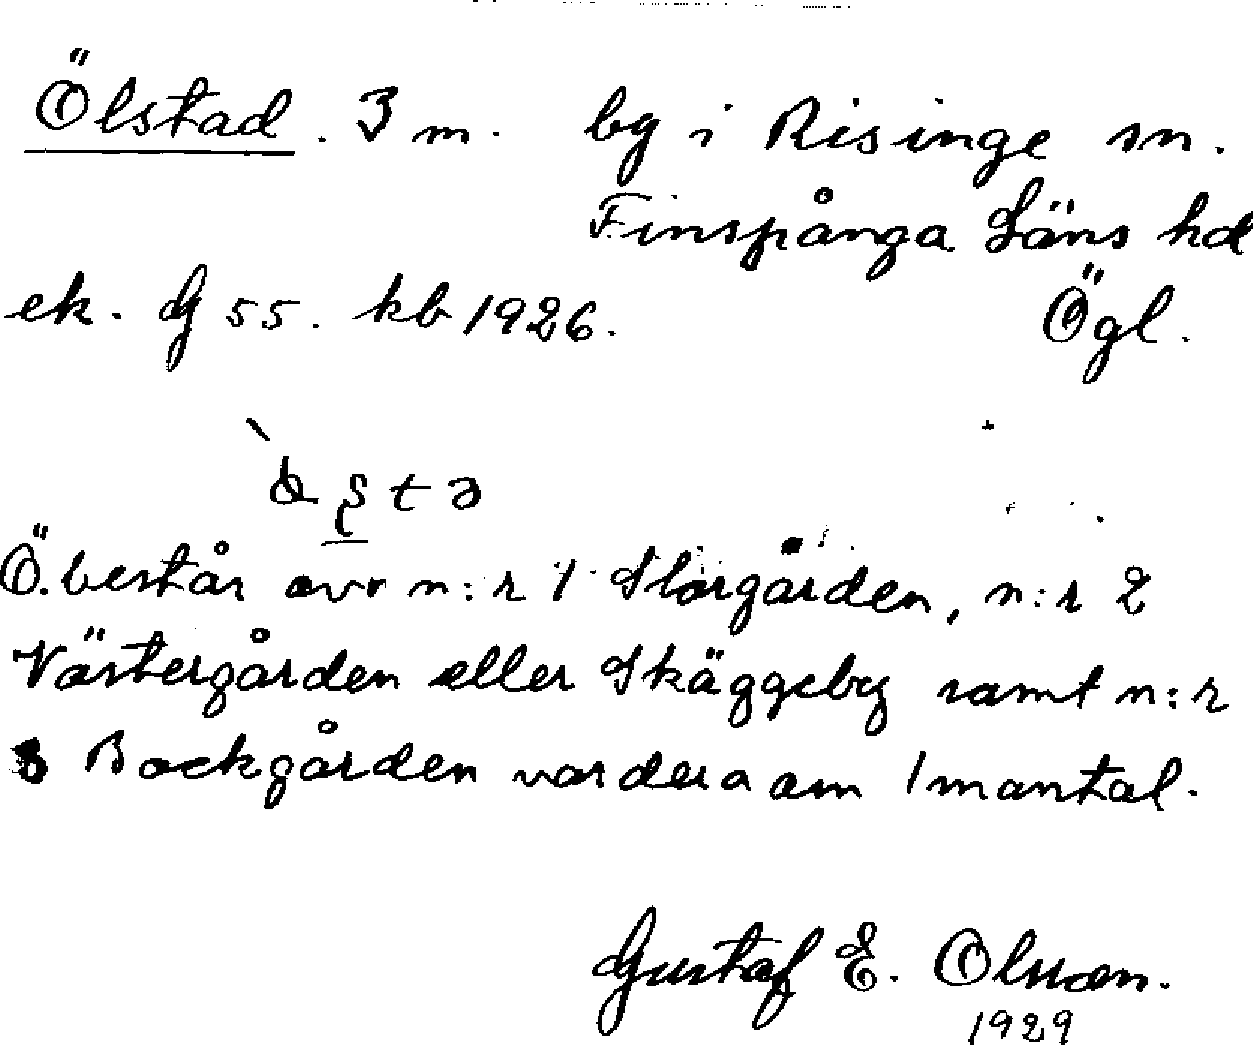 Ölstad. 3 m. by i Risinge sn.
Finspånga Läns hd
ek. G 55. kb 1926. Ögl.
Ö. består avv n:r 1 Storgården, n:r 2
Västergården eller Skäggeby samt n:r
3 Bockgården vardera om 1 mantal.
Gustaf E. Olsson.
1929